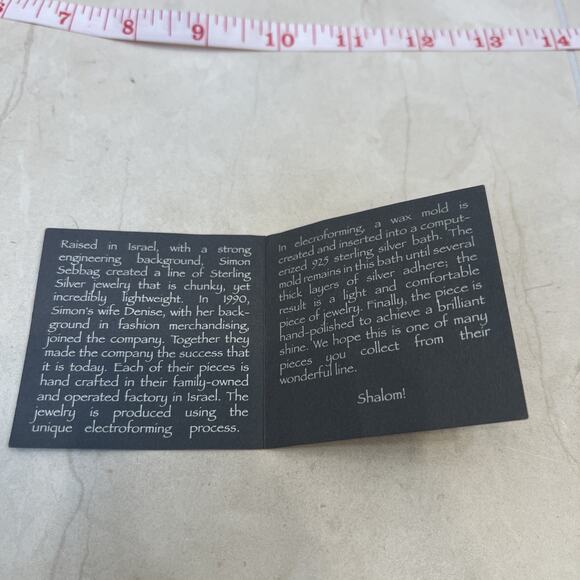 7 8 9 10 11 12 13 14
Raised in Israel, with a strong
engineering background, Simon
Sebbag created a line of Sterling
Silver jewelry that is chunky, yet
incredibly lightweight. In 1990,
Simon's wife Denise, with her back-
ground in fashion merchandising,
joined the company. Together they
made the company the success that
it is today. Each of their pieces is
hand crafted in their family-owned
and operated factory in Israel. The
jewelry is produced using the
unique electroforming process.
In elecroforming, a wax mold is
created and inserted into a comput-
erized 925 sterling silver bath. The
mold remains in this bath until several
thick layers of silver adhere; the
result is a light and comfortable
piece of jewelry. Finally, the piece is
hand-polished to achieve a brilliant
shine. We hope this is one of many
pieces you collect from their
wonderful line.
Shalom!